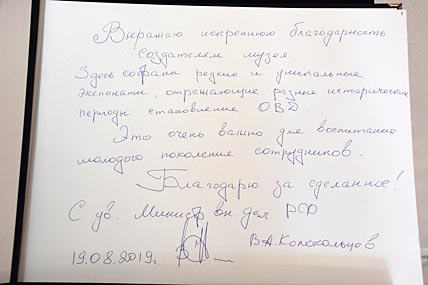 Выражаю искреннюю благодарность
создателем музея.
Здесь собраны редкие и уникальные
экспонаты, отражающие разные исторические
периоды становления ОВД.
Это очень важно для воспитания
молодого поколения сотрудников.
Благодарю за сделанное!
С ув. Министр вн. дел РФ
В.А. Колокольцев
19.08.2019г.